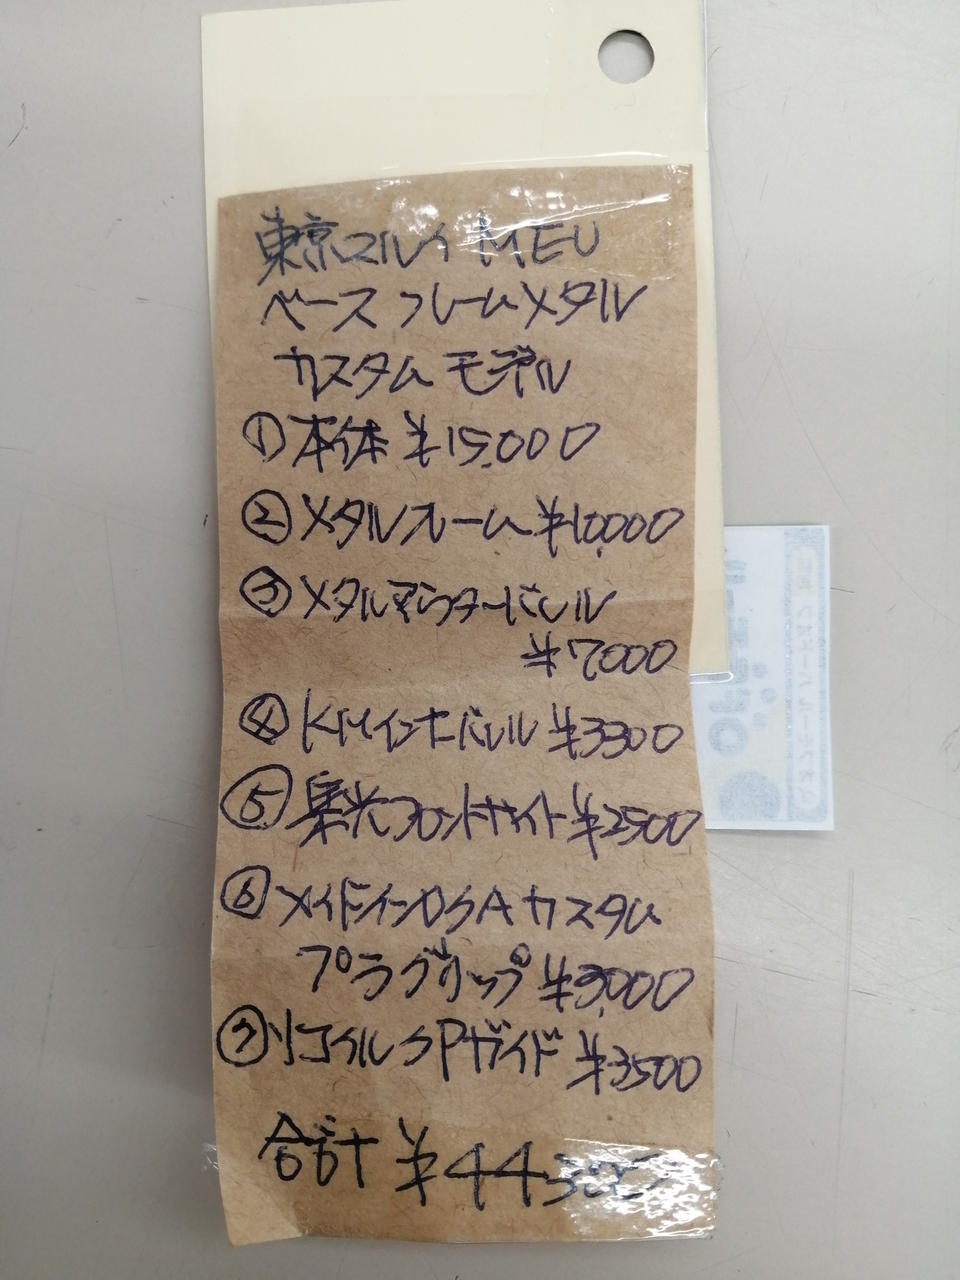 東京マルイ MEU
ベース フレームメタル
カスタム モデル
①本体 ¥15,000
②メタルフレーム ¥10,000
③メタルアウターバレル
¥7000
④KMインナーバレル ¥3300
⑤集光フロントサイト ¥2500
⑥メイドインUSA カスタム
プラグリップ ¥3,000
⑦リコイルSPガイド ¥3500
合計 ¥44300